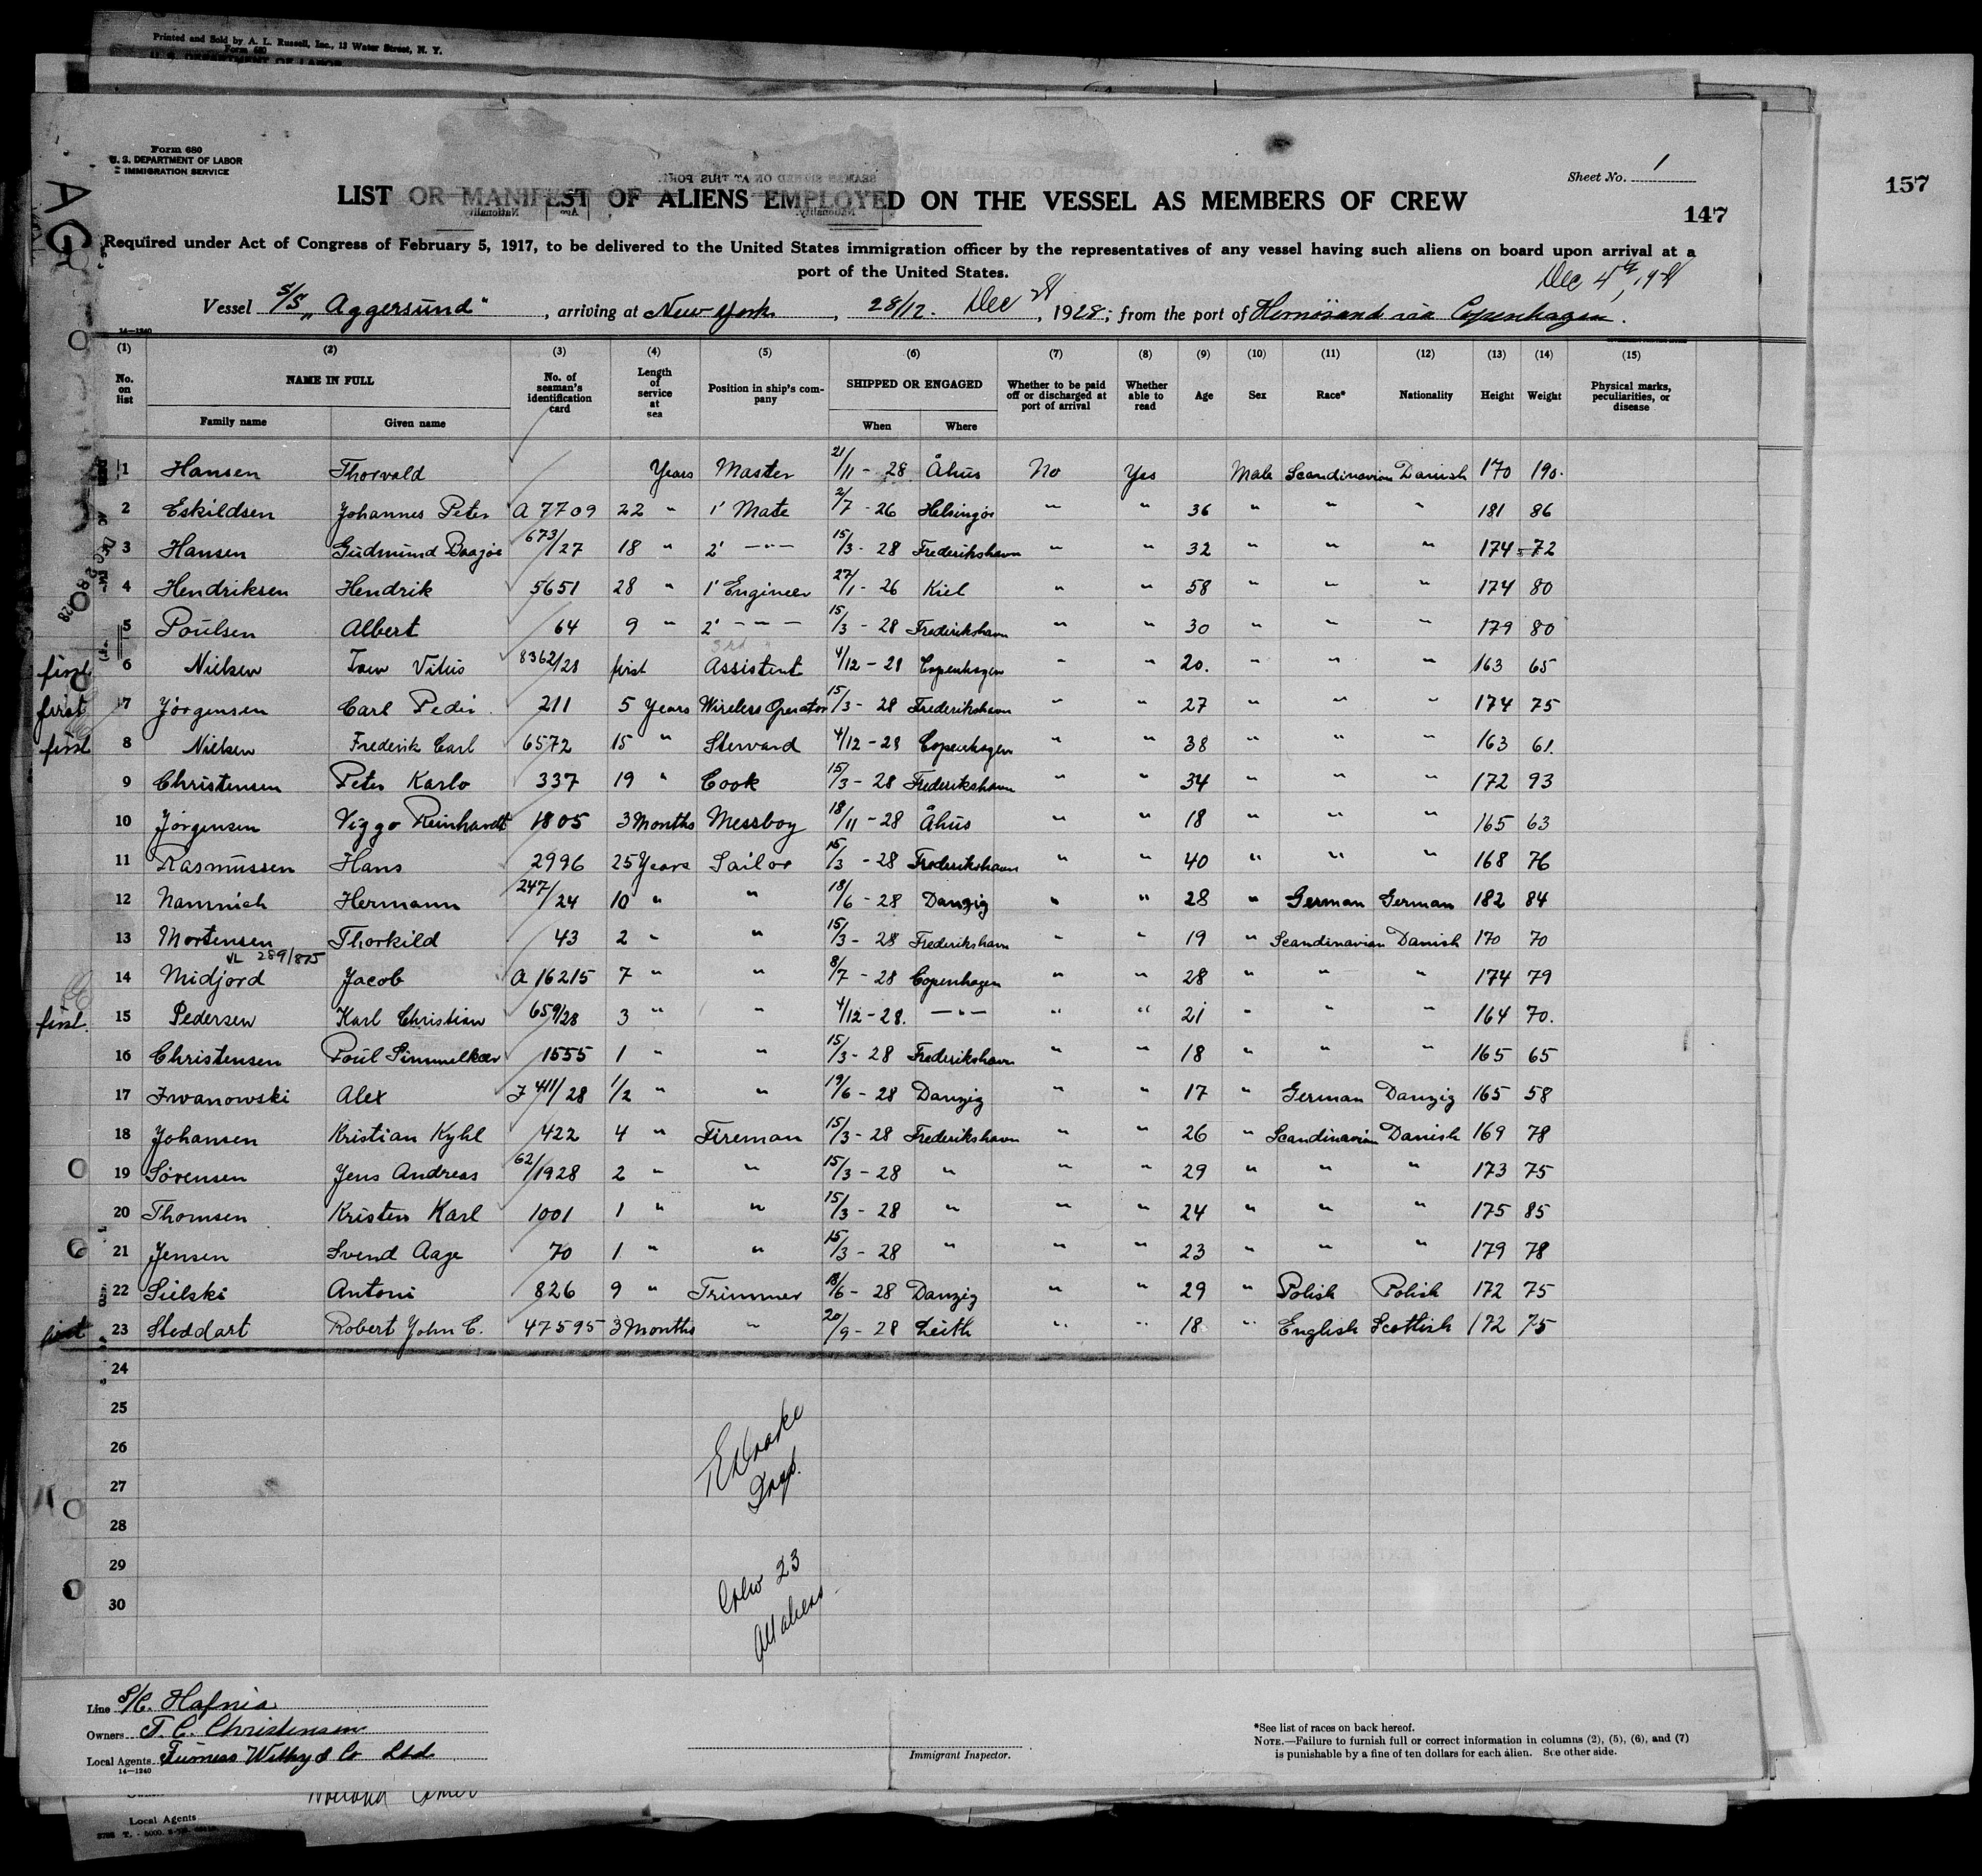 Printed and Sold by A. L. Russell, Inc., 13 Water Street, N. Y.
Form 680
U. S. DEPARTMENT OF LABOR
Form 680
U. S. DEPARTMENT OF LABOR
IMMIGRATION SERVICE
Sheet No. 1
157
LIST OR MANIFEST OF ALIENS EMPLOYED ON THE VESSEL AS MEMBERS OF CREW
147
Required under Act of Congress of February 5, 1917, to be delivered to the United States immigration officer by the representatives of any vessel having such aliens on board upon arrival at a
port of the United States.
Dec 4th,
Vessel S/S „Aggersund", arriving at New-York, 28/12. Dec 28, 1928; from the port of Hernösand via Copenhagen.
14—1240
(1) (2) (3) (4) (5) (6) (7) (8) (9) (10) (11) (12) (13) (14) (15)
No. on list NAME IN FULL No. of seaman's identification card Length of service at sea Position in ship's company SHIPPED OR ENGAGED Whether to be paid off or discharged at port of arrival Whether able to read Age Sex Race* Nationality Height Weight Physical marks, peculiarities, or disease
Family name Given name When Where
1 Hansen Thorvald Years Master 21/11 - 28 Åhus No Yes Male Scandinavian Danish 170 190.
2 Eskildsen Johannes Peter A 7709 22 " 1' Mate 2/7 - 26 Helsingör " " 36 " " " 181 86
3 Hansen Gudmund Baagöe 673/27 18 " 2' -"- 15/3 - 28 Frederikshavn " " 32 " " " 174 - 72
4 Hendriksen Hendrik 5651 28 " 1' Engineer 27/1 - 26 Kiel " " 58 " " " 174 80
5 Poulsen Albert 64 9 " 2' -"- 15/3 - 28 Frederikshavn " " 30 " " " 179 80
3rd
first 6 Nielsen Vitus 8362/28 first Assistent 4/12 - 28 Copenhagen " " 20. " " " 163 65
first 7 Jörgensen Carl Peder 211 5 Years Wireless Operator 15/3 - 28 Frederikshavn " " 27 " " " 174 75
first 8 Nielsen Frederik Carl 6572 15 " Stervard 4/12 - 28 Copenhagen " " 38 " " " 163 61.
9 Christensen Peter Karlo 337 19 " Cook 15/3 - 28 Frederikshavn " " 34 " " " 172 93
10 Jörgensen Viggo Reinhardt 1805 3 Months Messboy 18/11 - 28 Åhus " " 18 " " " 165 63
11 Rasmussen Hans 2996 25 Years Sailor 15/3 - 28 Frederikshavn " " 40 " " " 168 76
12 Namnich Hermann 247/24 10 " " 18/6 - 28 Danzig " " 28 " German German 182 84
13 Mortensen Thorkild 43 2 " " 15/3 - 28 Frederikshavn " " 19 " Scandinavian Danish 170 70
VL 289/875
14 Midjord Jacob A 16215 7 " " 8/7 - 28 Copenhagen " " 28 " " " 174 79
first. 15 Pedersen Karl Christian 659/28 3 " " 4/12 - 28. -"- " " 21 " " " 164 70.
16 Christensen Poul Simmelkær 1555 1 " " 15/3 - 28 Frederikshavn " " 18 " " " 165 65
17 Iwanowski Alex J 411/28 1/2 " " 19/6 - 28 Danzig " " 17 " German Danzig 165 58
18 Johansen Kristian Kyhl 422 4 " Fireman 15/3 - 28 Frederikshavn " " 26 " Scandinavian Danish 169 78
19 Sörensen Jens Andreas 62/1928 2 " " 15/3 - 28 " " " 29 " " " 173 75
20 Thomsen Kristen Karl 1001 1 " " 15/3 - 28 " " " 24 " " " 175 85
21 Jensen Svend Aage 70 1 " " 15/3 - 28 " " " 23 " " " 179 78
22 Sielski Antoni 826 9 " Trimmer 18/6 - 28 Danzig " " 29 " Polish Polish 172 75
first 23 Steddart Robert John C. 47595 3 Months " 20/9 - 28 Leith " " 18 " English Scottish 172 75
24
25
26
27
28
29
30
EDrake
Insp.
Crew 23
All aliens
Line S/C. Hafnia
Owners J. C. Christensen
Local Agents Furness Withy & Co Ltd.
14—1240
Immigrant Inspector.
*See list of races on back hereof.
NOTE.—Failure to furnish full or correct information in columns (2), (5), (6), and (7)
is punishable by a fine of ten dollars for each alien. See other side.
Local Agents